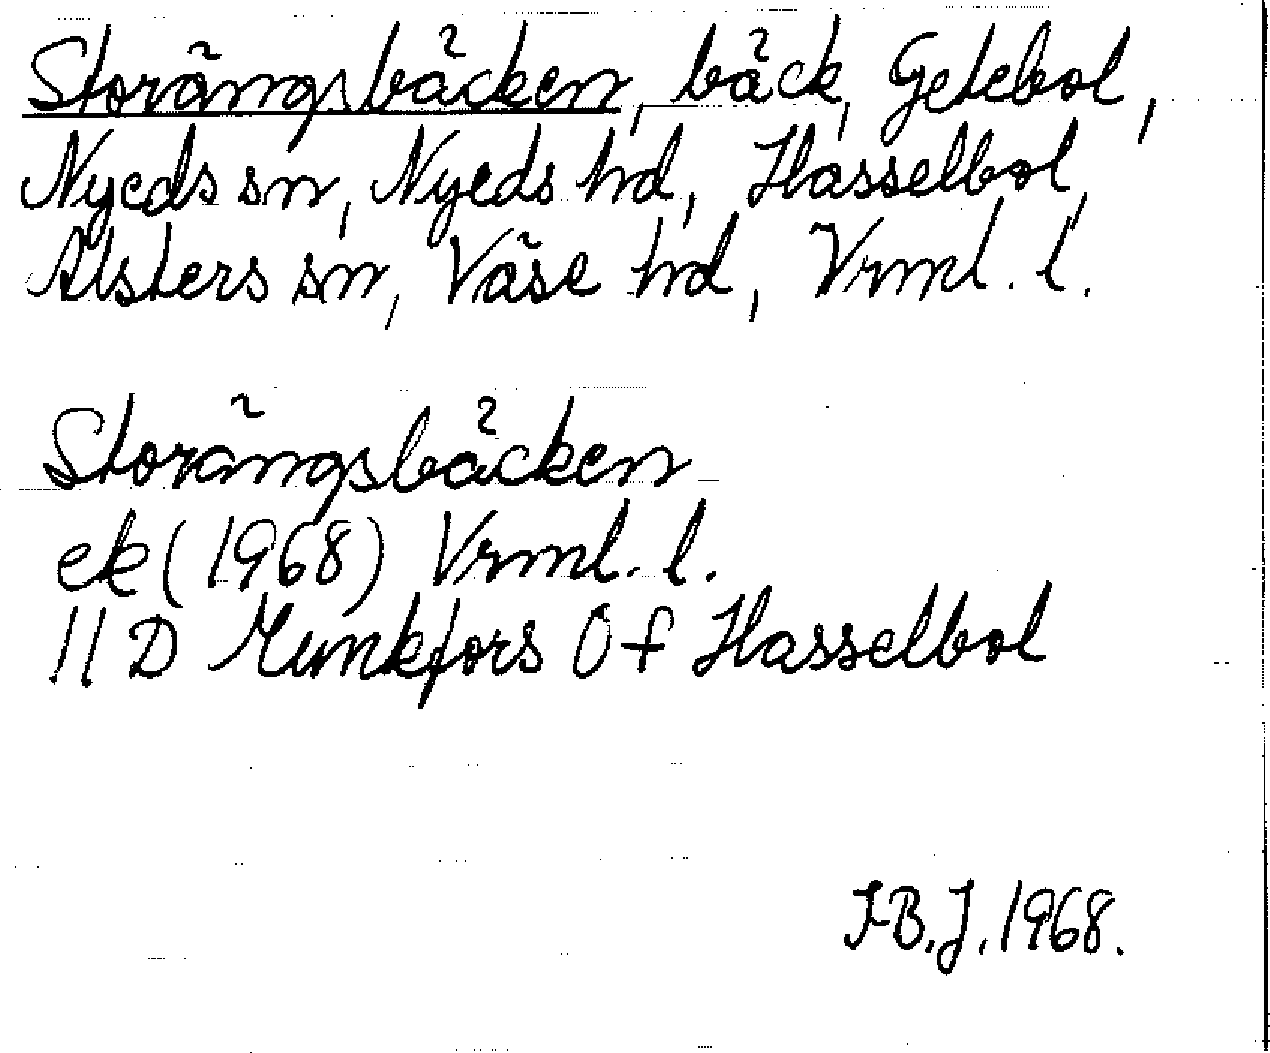 Storängsbäcken, bäck, Getebol,
Nyeds sn, Nyeds hd, Hasselbol,
Alsters sn, Väse hd, Vrml. l.
Storängsbäcken
ek (1968) Vrml. l.
11 D Munkfors 0 f Hasselbol
I-B.J. 1968.